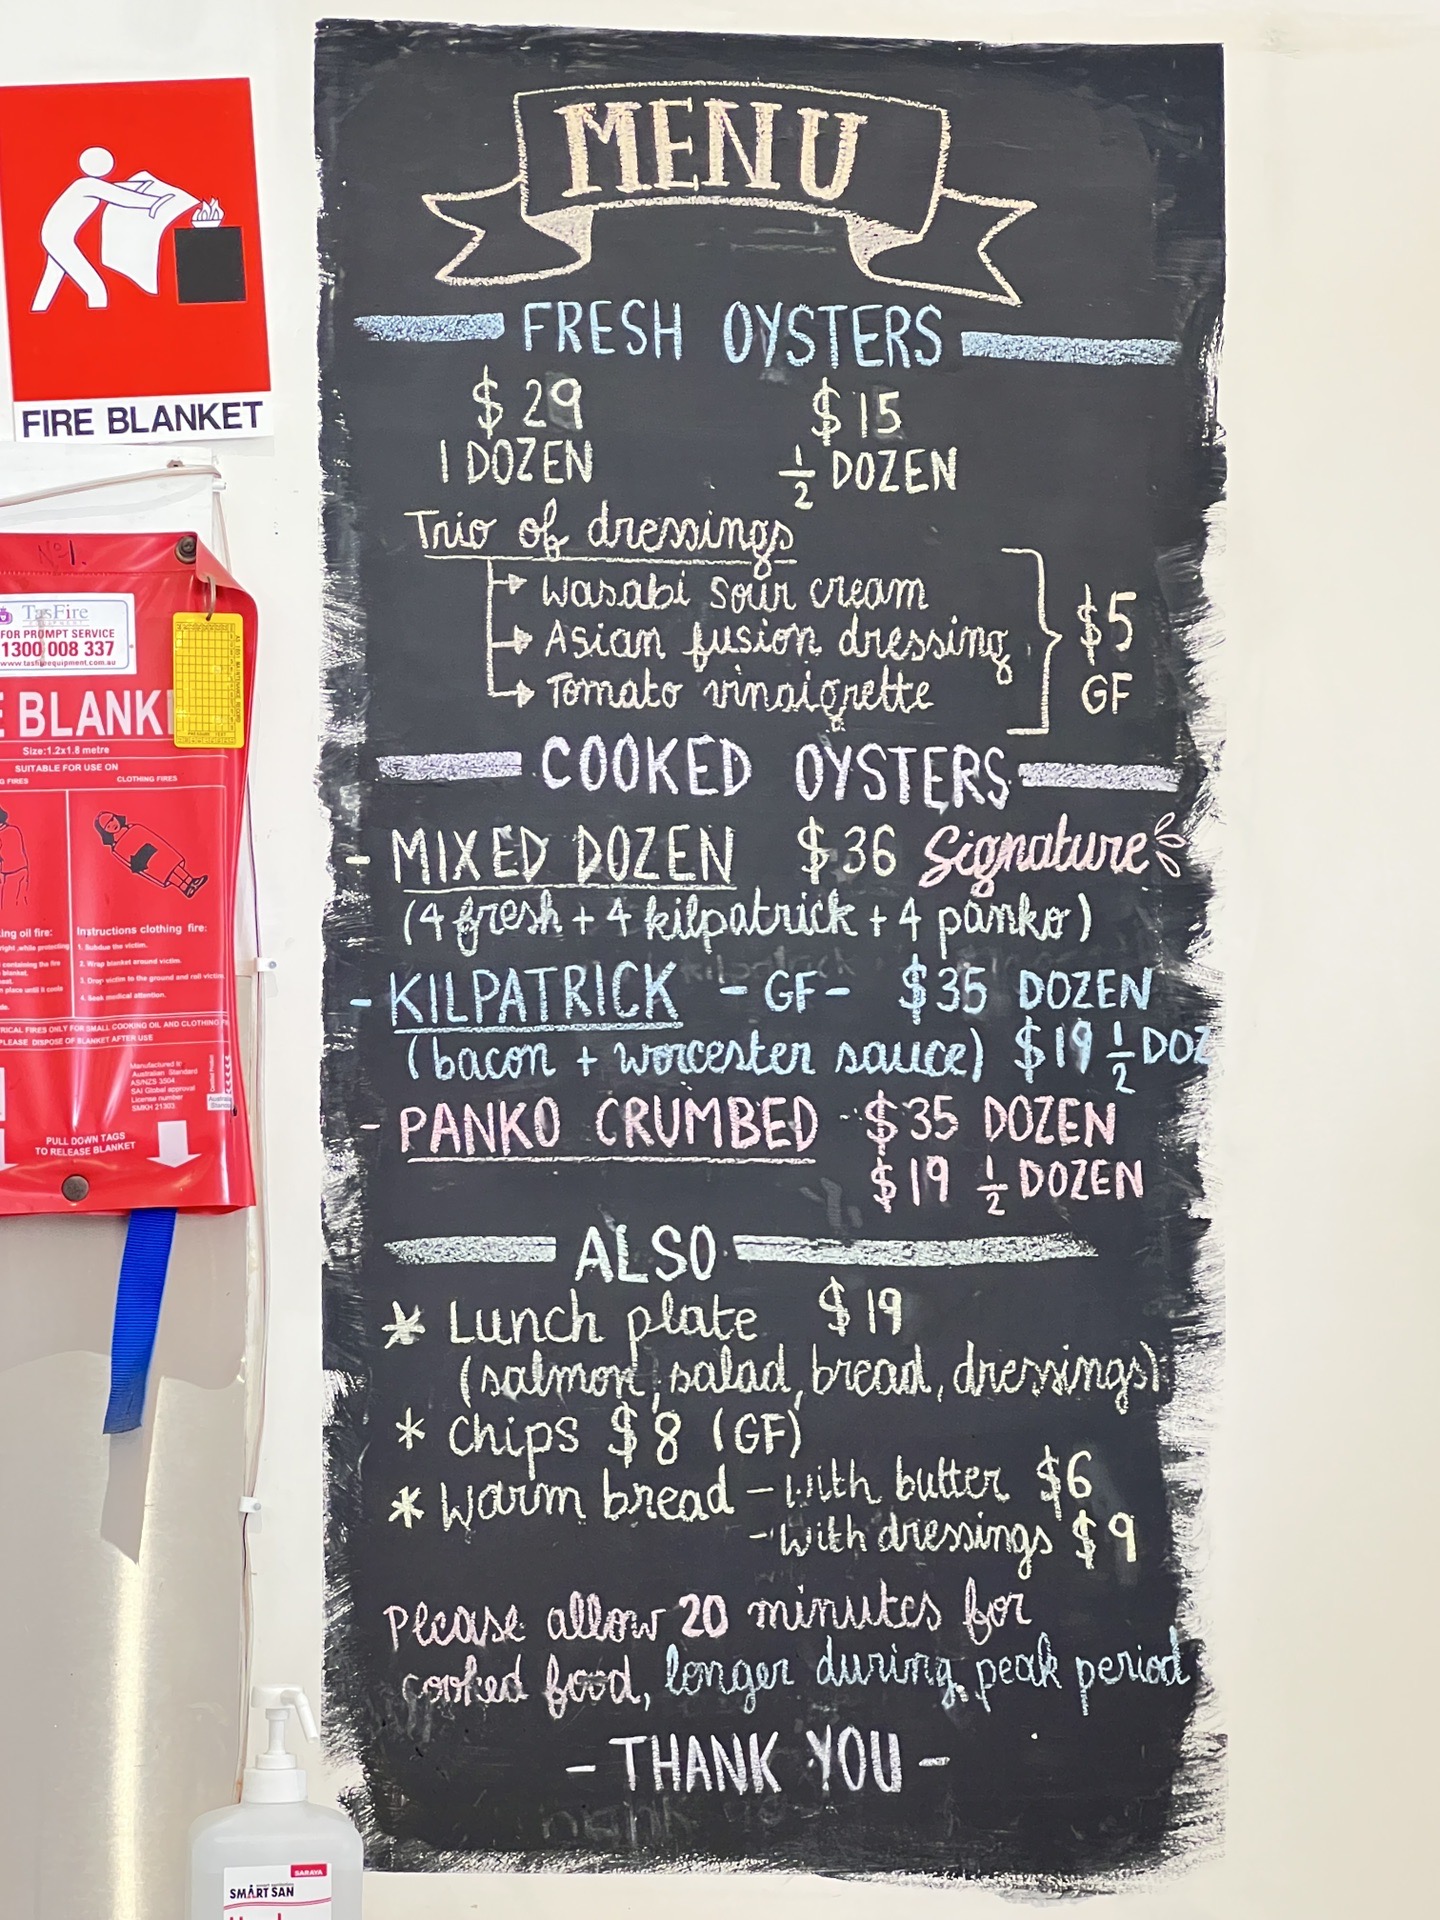 MENU
FRESH OYSTERS
$29 $15
1 DOZEN ½ DOZEN
Trio of dressings
Wasabi sour cream
Asian fusion dressing
Tomato vinaigrette
$5
GF
COOKED OYSTERS
- MIXED DOZEN $36 Signature
(4 fresh + 4 kilpatrick + 4 panko)
- KILPATRICK - GF - $35 DOZEN
(bacon + worcester sauce) $19 ½ DOZ
- PANKO CRUMBED $35 DOZEN
$19 ½ DOZEN
ALSO
* Lunch plate $19
(salmon, salad, bread, dressings)
* Chips $8 (GF)
* Warm bread - with butter $6
- with dressings $9
Please allow 20 minutes for
cooked food, longer during peak period
- THANK YOU -
FIRE BLANKET
Nº1.
TasFire
EQUIPMENT
FOR PROMPT SERVICE
1300 008 337
www.tasfireequipment.com.au
E BLANK
Size:1.2x1.8 metre
SUITABLE FOR USE ON
G FIRES CLOTHING FIRES
ing oil fire:
Instructions clothing fire:
1. Subdue the victim.
2. Wrap blanket around victim.
3. Drop victim to the ground and roll victim
4. Seek medical attention.
RICAL FIRES ONLY FOR SMALL COOKING OIL AND CLOTHING
PLEASE DISPOSE OF BLANKET AFTER USE
Manufactured to
Australian Standard
AS/NZS 3504
SAI Global approval
License number
SMKH 21303
PULL DOWN TAGS
TO RELEASE BLANKET
SARAYA
SMART SAN